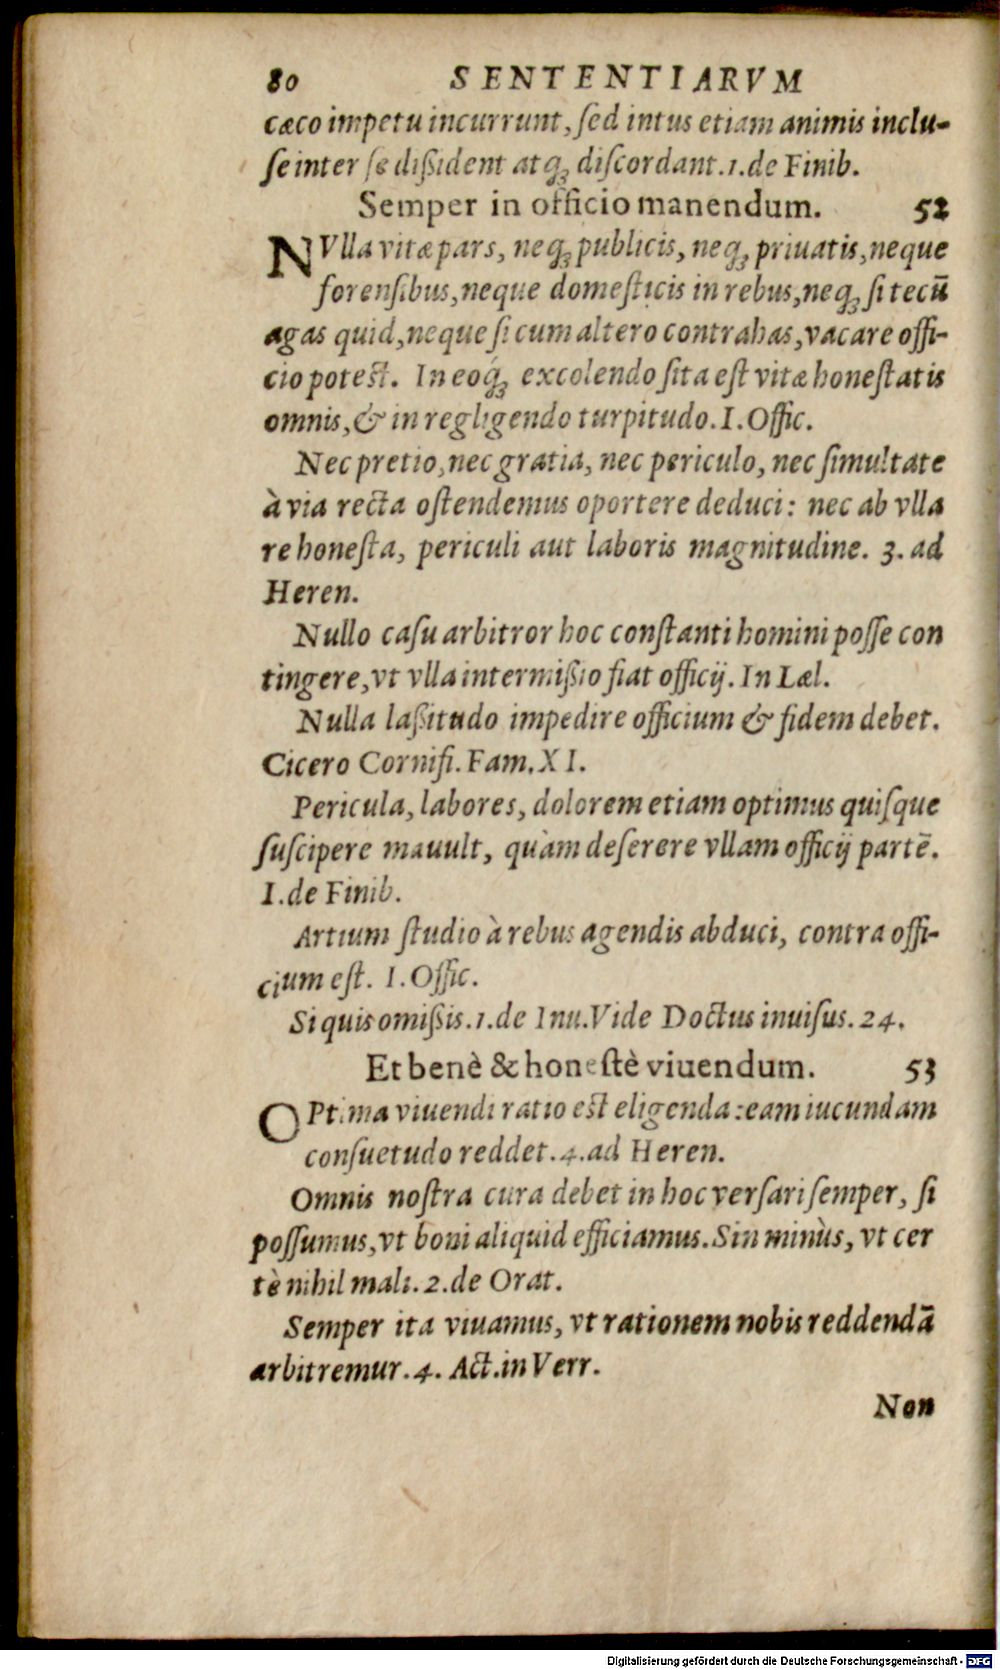 80 SENTENTIARVM
cæco impetu incurrunt, ſed intus etiam animis inclu-
ſe inter ſe dißident atq́ꝫ diſcordant. 1. de Finib.
Semper in officio manendum. 52
NVlla vitæ pars, neqꝫ publicis, neqꝫ priuatis, neque
forenſibus, neque domeſticis in rebus, neqꝫ ſi tecū
agas quid, neque ſi cum altero contrahas, vacare offi-
cio poteſt. In eoq́ꝫ excolendo ſita eſt vitæ honeſtatis
omnis, & in regligendo turpitudo. I. Offic.
Nec pretio, nec gratia, nec periculo, nec ſimultate
à via recta oſtendemus oportere deduci: nec ab vlla
re honeſta, periculi aut laboris magnitudine. 3. ad
Heren.
Nullo caſu arbitror hoc conſtanti homini poſſe con
tingere, vt vlla intermißio fiat officij. In Læl.
Nulla laßitudo impedire officium & fidem debet.
Cicero Cornifi. Fam. XI.
Pericula, labores, dolorem etiam optimus quiſque
ſuſcipere mauult, quàm deſerere vllam officij partē.
I. de Finib.
Artium ſtudio à rebus agendis abduci, contra offi-
cium eſt. I. Offic.
Si quis omißis. 1. de Inu. Vide Doctus inuiſus. 24.
Et benè & honeſtè viuendum. 53
OPtima viuendi ratio eſt eligenda: eam iucundam
conſuetudo reddet. 4. ad Heren.
Omnis noſtra cura debet in hoc verſari ſemper, ſi
poſſumus, vt boni aliquid efficiamus. Sin minùs, vt cer
tè nihil mali. 2. de Orat.
Semper ita viuamus, vt rationem nobis reddendā
arbitremur. 4. Act. in Verr.
Non
Digitalisierung gefördert durch die Deutsche Forschungsgemeinschaft - DFG